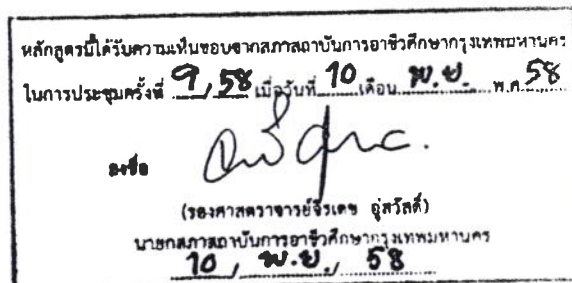 หลักสูตรนี้ได้รับความเห็นชอบจากสภาสถาบันการอาชีวศึกษากรุงเทพมหานคร
ในการประชุมครั้งที่ 9/58 เมื่อวันที่ 10 เดือน พ.ย. พ.ศ. 58
ลงชื่อ
(รองศาสตราจารย์จิรเดช อู่สวัสดิ์)
นายกสภาสถาบันการอาชีวศึกษากรุงเทพมหานคร
10 / พ.ย. / 58